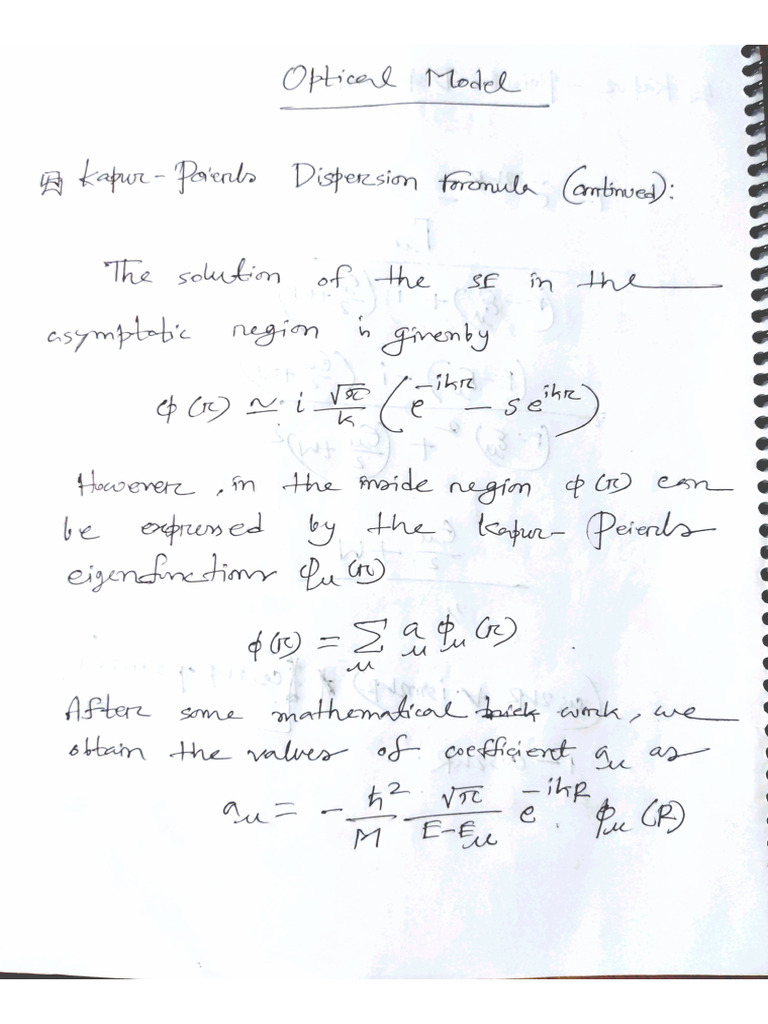 Optical Model
Kapur-Peierls Dispersion Formula (Continued):
The solution of the SE in the
asymptotic region is given by
ϕ(r) ≃ i √π/k (e^{-ikr} - S e^{ikr})
However, in the inside region ϕ(r) can
be expressed by the Kapur- Peierls
eigenfunctions ϕ_μ(r)
ϕ(r) = Σ_μ a_μ ϕ_μ(r)
After some mathematical work, we
obtain the values of coefficient a_μ as
a_μ = - ħ²/M √π/(E-E_μ) e^{-ikR} ϕ_μ(R)